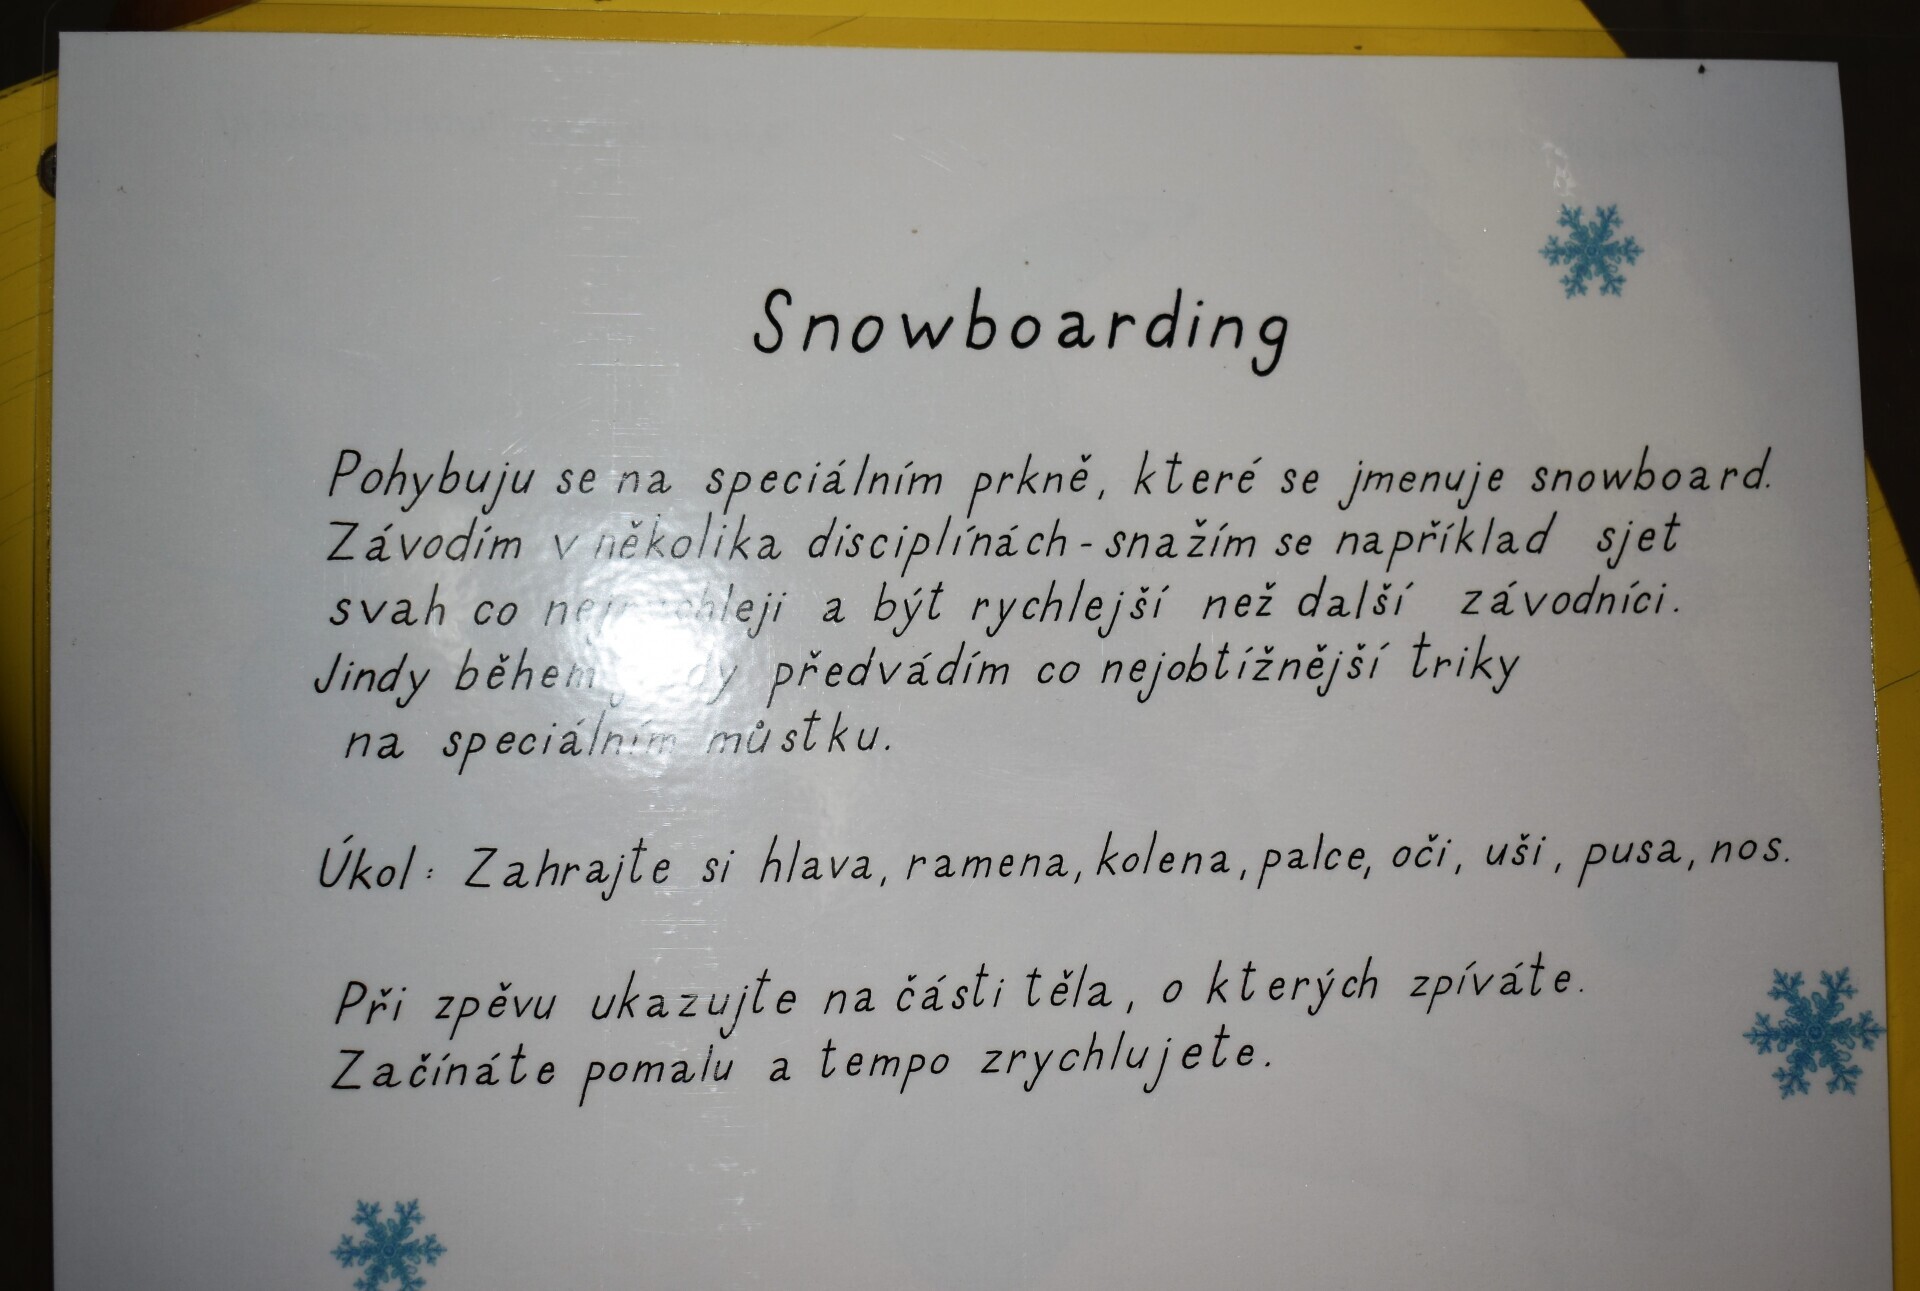 Snowboarding
Pohybuju se na speciálním prkně, které se jmenuje snowboard.
Závodím v několika disciplínách - snažím se například sjet
svah co nejrychleji a být rychlejší než další závodníci.
Jindy během předvádím co nejobtížnější triky
na speciálním můstku.
Úkol: Zahrajte si hlava, ramena, kolena, palce, oči, uši, pusa, nos.
Při zpěvu ukazujte na části těla, o kterých zpíváte.
Začínáte pomalu a tempo zrychlujete.